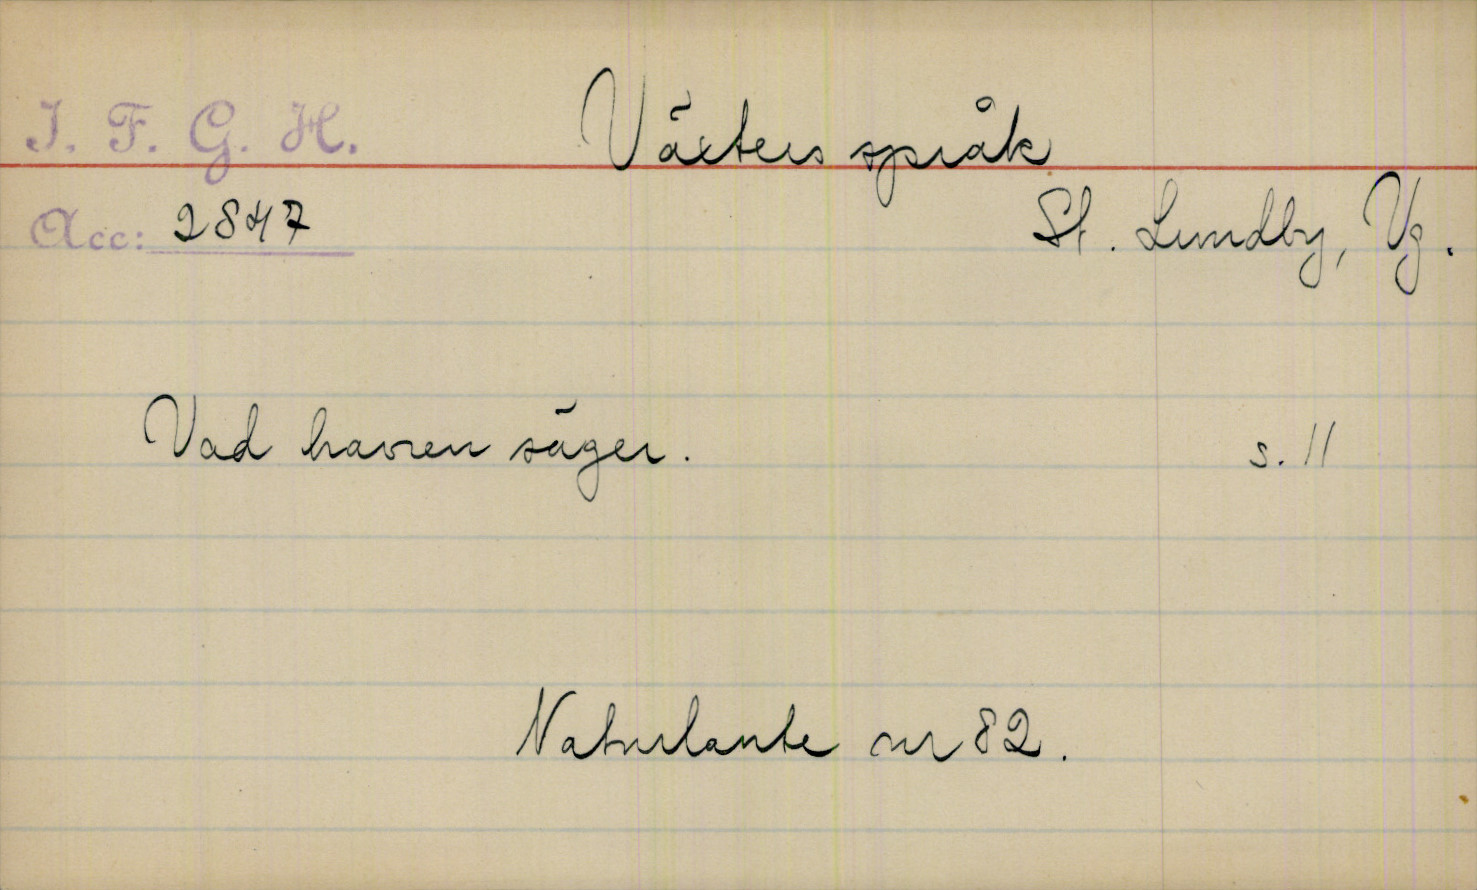 I. F. G. H.
Växters språk
Acc: 2847
St. Lundby, Vg.
Vad havren säger. s. 11
Naturlaute nr 82.